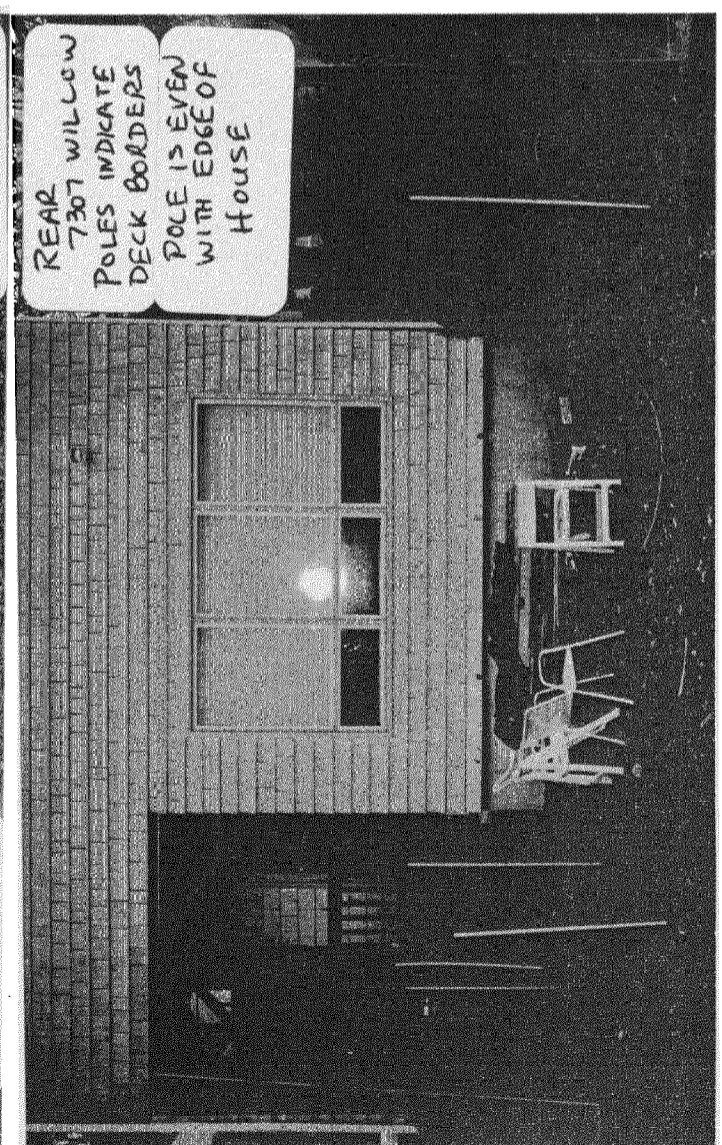 REAR
7307 WILLOW
POLES INDICATE
DECK BORDERS
POLE IS EVEN
WITH EDGE OF
HOUSE